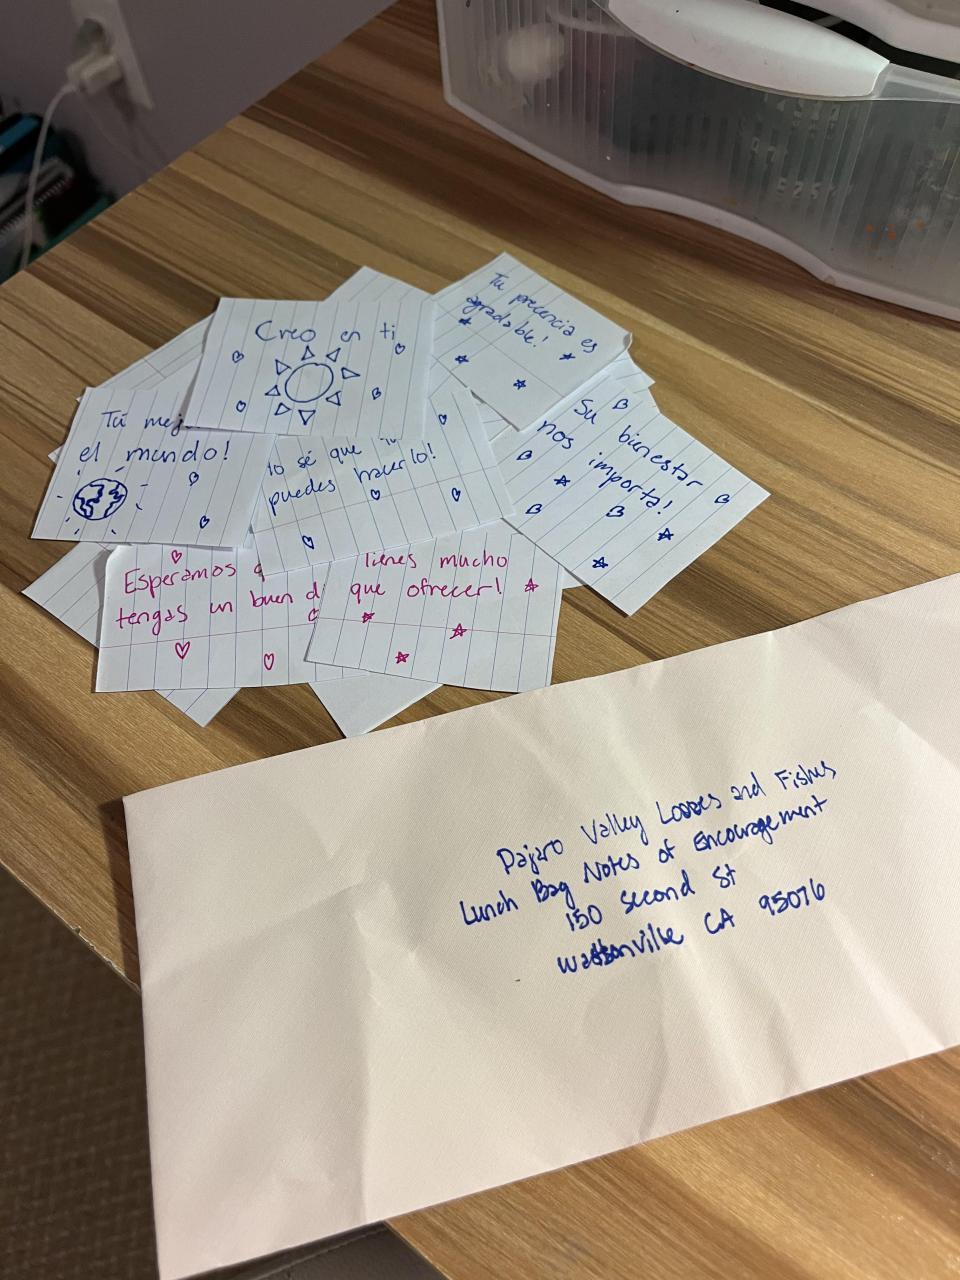 Creo en ti
Tu precencia es
agradable!
Tú mej
el mundo!
Yo sé que tú
puedes hacerlo!
Su bienestar
nos importa!
Esperamos q
tengas un buen d
Tienes mucho
que ofrecer!
Pajaro Valley Loaves and Fishes
Lunch Bag Notes of Encouragement
150 Second St
Watsonville CA 95076